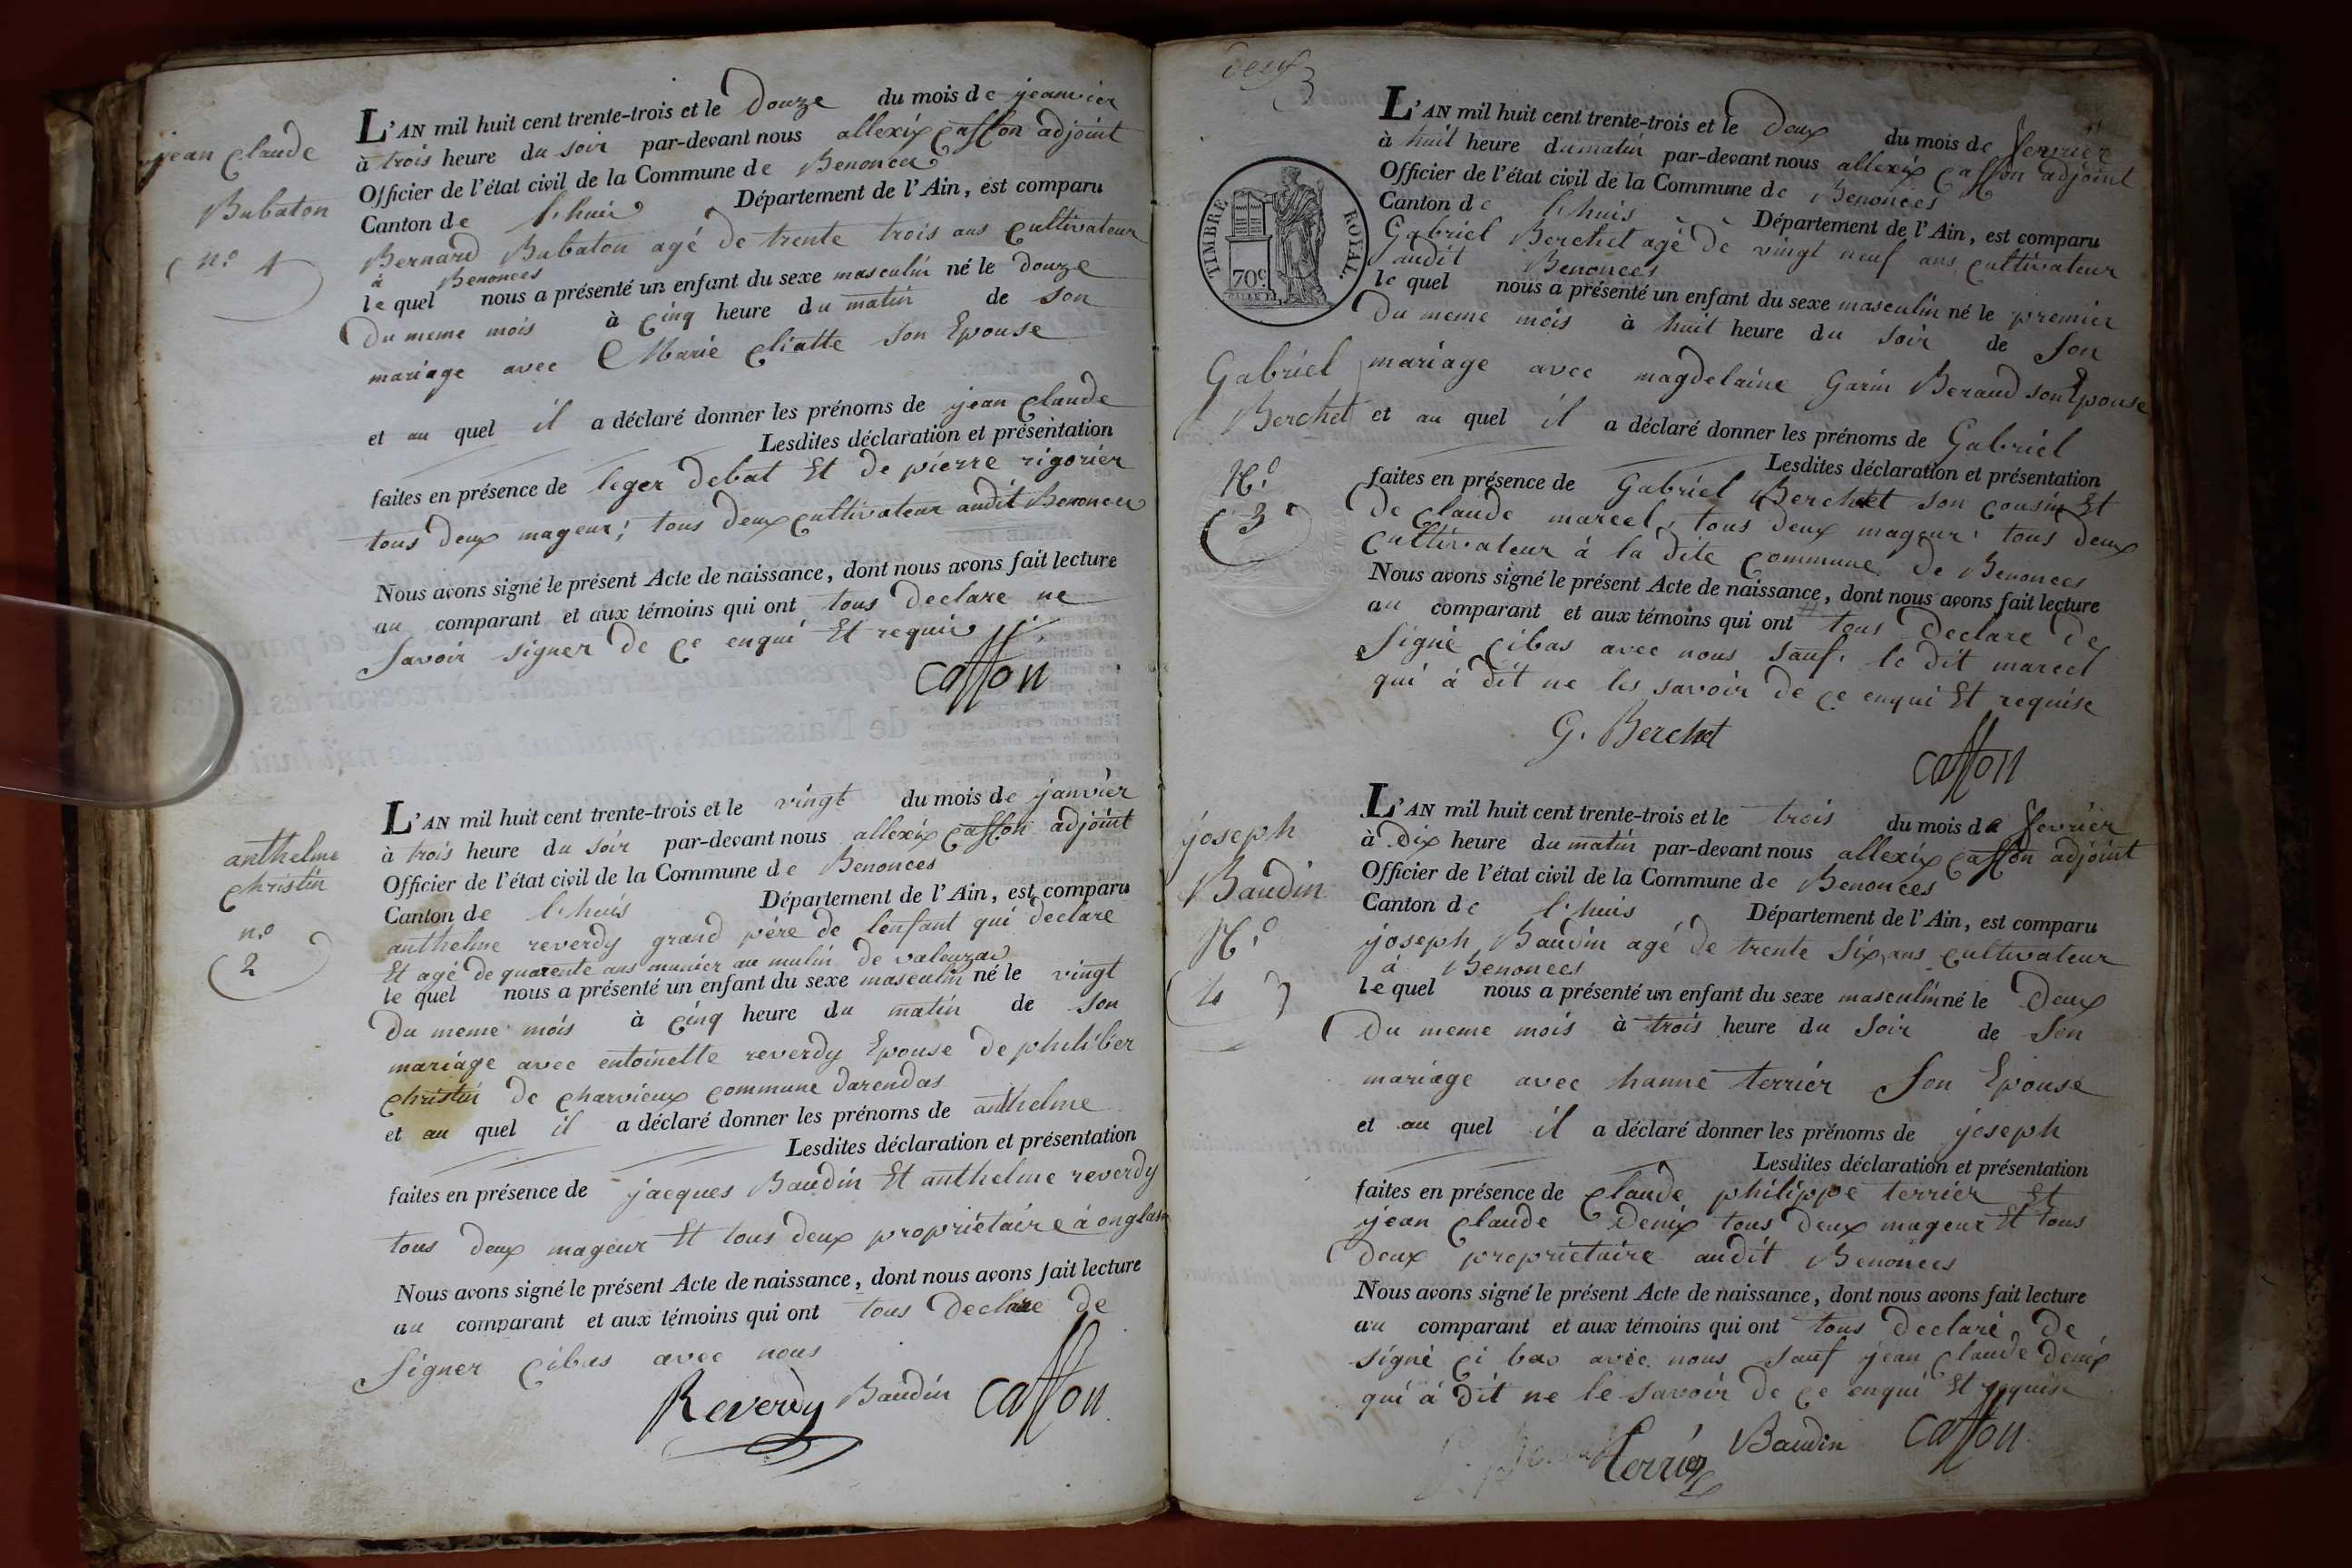 jean Claude
Babaton
n.o 1
L'AN mil huit cent trente-trois et le Douze du mois de jeanvier
à trois heure du soir par-devant nous allexix Casson adjoint
Officier de l'état civil de la Commune de Benonces
Canton de l'huis Département de l'Ain, est comparu
Bernard Babaton agé de trente trois ans Cultivateur
à Benonces
lequel nous a présenté un enfant du sexe masculin né le Douze
Du meme mois à Cinq heure du matin de son
mariage avec Marie Cliatte son Epouse
et au quel il a déclaré donner les prénoms de jean Claude
Lesdites déclaration et présentation
faites en présence de leger debat Et de pierre rigorier
tous Deux mageur; tous Deux Cultivateur audit Benonces
Nous avons signé le présent Acte de naissance, dont nous avons fait lecture
au comparant et aux témoins qui ont tous Declare ne
Savoir signer De Ce enqui Et requis
Casson
anthelme
Christin
n.o
2
L'AN mil huit cent trente-trois et le vingt du mois de janvier
à trois heure du soir par-devant nous allexix Casson adjoint
Officier de l'état civil de la Commune de Benonces
Canton de l'huis Département de l'Ain, est comparu
anthelme reverdy grand père de lenfant qui declare
Et agé De quarente ans munier au mulin De valeuzas
le quel nous a présenté un enfant du sexe masculin né le vingt
Du meme mois à Cinq heure du matin de son
mariage avec entoinette reverdy Epouse De philiber
Christin De Charvieux Commune Darendas
et au quel il a déclaré donner les prénoms de anthelme
Lesdites déclaration et présentation
faites en présence de jacques Baudin Et anthelme reverdy
tous Deux mageur Et tous Deux propriétaire à onglas
Nous avons signé le présent Acte de naissance, dont nous avons fait lecture
au comparant et aux témoins qui ont tous Declare De
Signer Cibas avec nous
Reverdy Baudin Casson
deux
TIMBRE ROYAL.
70c
Gabriel
Berchet
N.o
3
L'AN mil huit cent trente-trois et le Deux du mois de fevrier
à huit heure du matin par-devant nous allexix Casson adjoint
Officier de l'état civil de la Commune de Benonces
Canton de l'huis Département de l'Ain, est comparu
Gabriel Berchet agé De vingt neuf ans Cultivateur
audit Benonces
le quel nous a présenté un enfant du sexe masculin né le premier
Du meme mois à huit heure du soir de Son
mariage avec magdelaine Garin Beraud son Epouse
et au quel il a déclaré donner les prénoms de Gabriel
Lesdites déclaration et présentation
faites en présence de Gabriel Berchet son Cousin Et
De Claude marcel, tous Deux mageur, tous Deux
Cultivateur à la dite Commune De Benonces
Nous avons signé le présent Acte de naissance, dont nous avons fait lecture
au comparant et aux témoins qui ont tous Declare De
Signé Cibas avec nous Sauf le dit marcel
qui à dit ne les savoir De Ce enqui Et requise
G. Berchet
Casson
joseph
Baudin
N.o
4
L'AN mil huit cent trente-trois et le trois du mois de fevrier
à Dix heure du matin par-devant nous allexix Casson adjoint
Officier de l'état civil de la Commune de Benonces
Canton de l'huis Département de l'Ain, est comparu
joseph Baudin agé De trente Six ans Cultivateur
à Benonces
le quel nous a présenté un enfant du sexe masculin né le Deux
Du meme mois à trois heure du Soir de Son
mariage avec hanne terrier Son Epouse
et au quel il a déclaré donner les prénoms de joseph
Lesdites déclaration et présentation
faites en présence de Claude philippe terrier Et
jean Claude Denix tous Deux mageur Et tous
Deux propriétaire audit Benonces
Nous avons signé le présent Acte de naissance, dont nous avons fait lecture
au comparant et aux témoins qui ont tous Declaré De
signé Ci bas avec nous sauf jean Claude Denix
qui à Dit ne le savoir De Ce enqui Et requise
terrier Baudin Casson